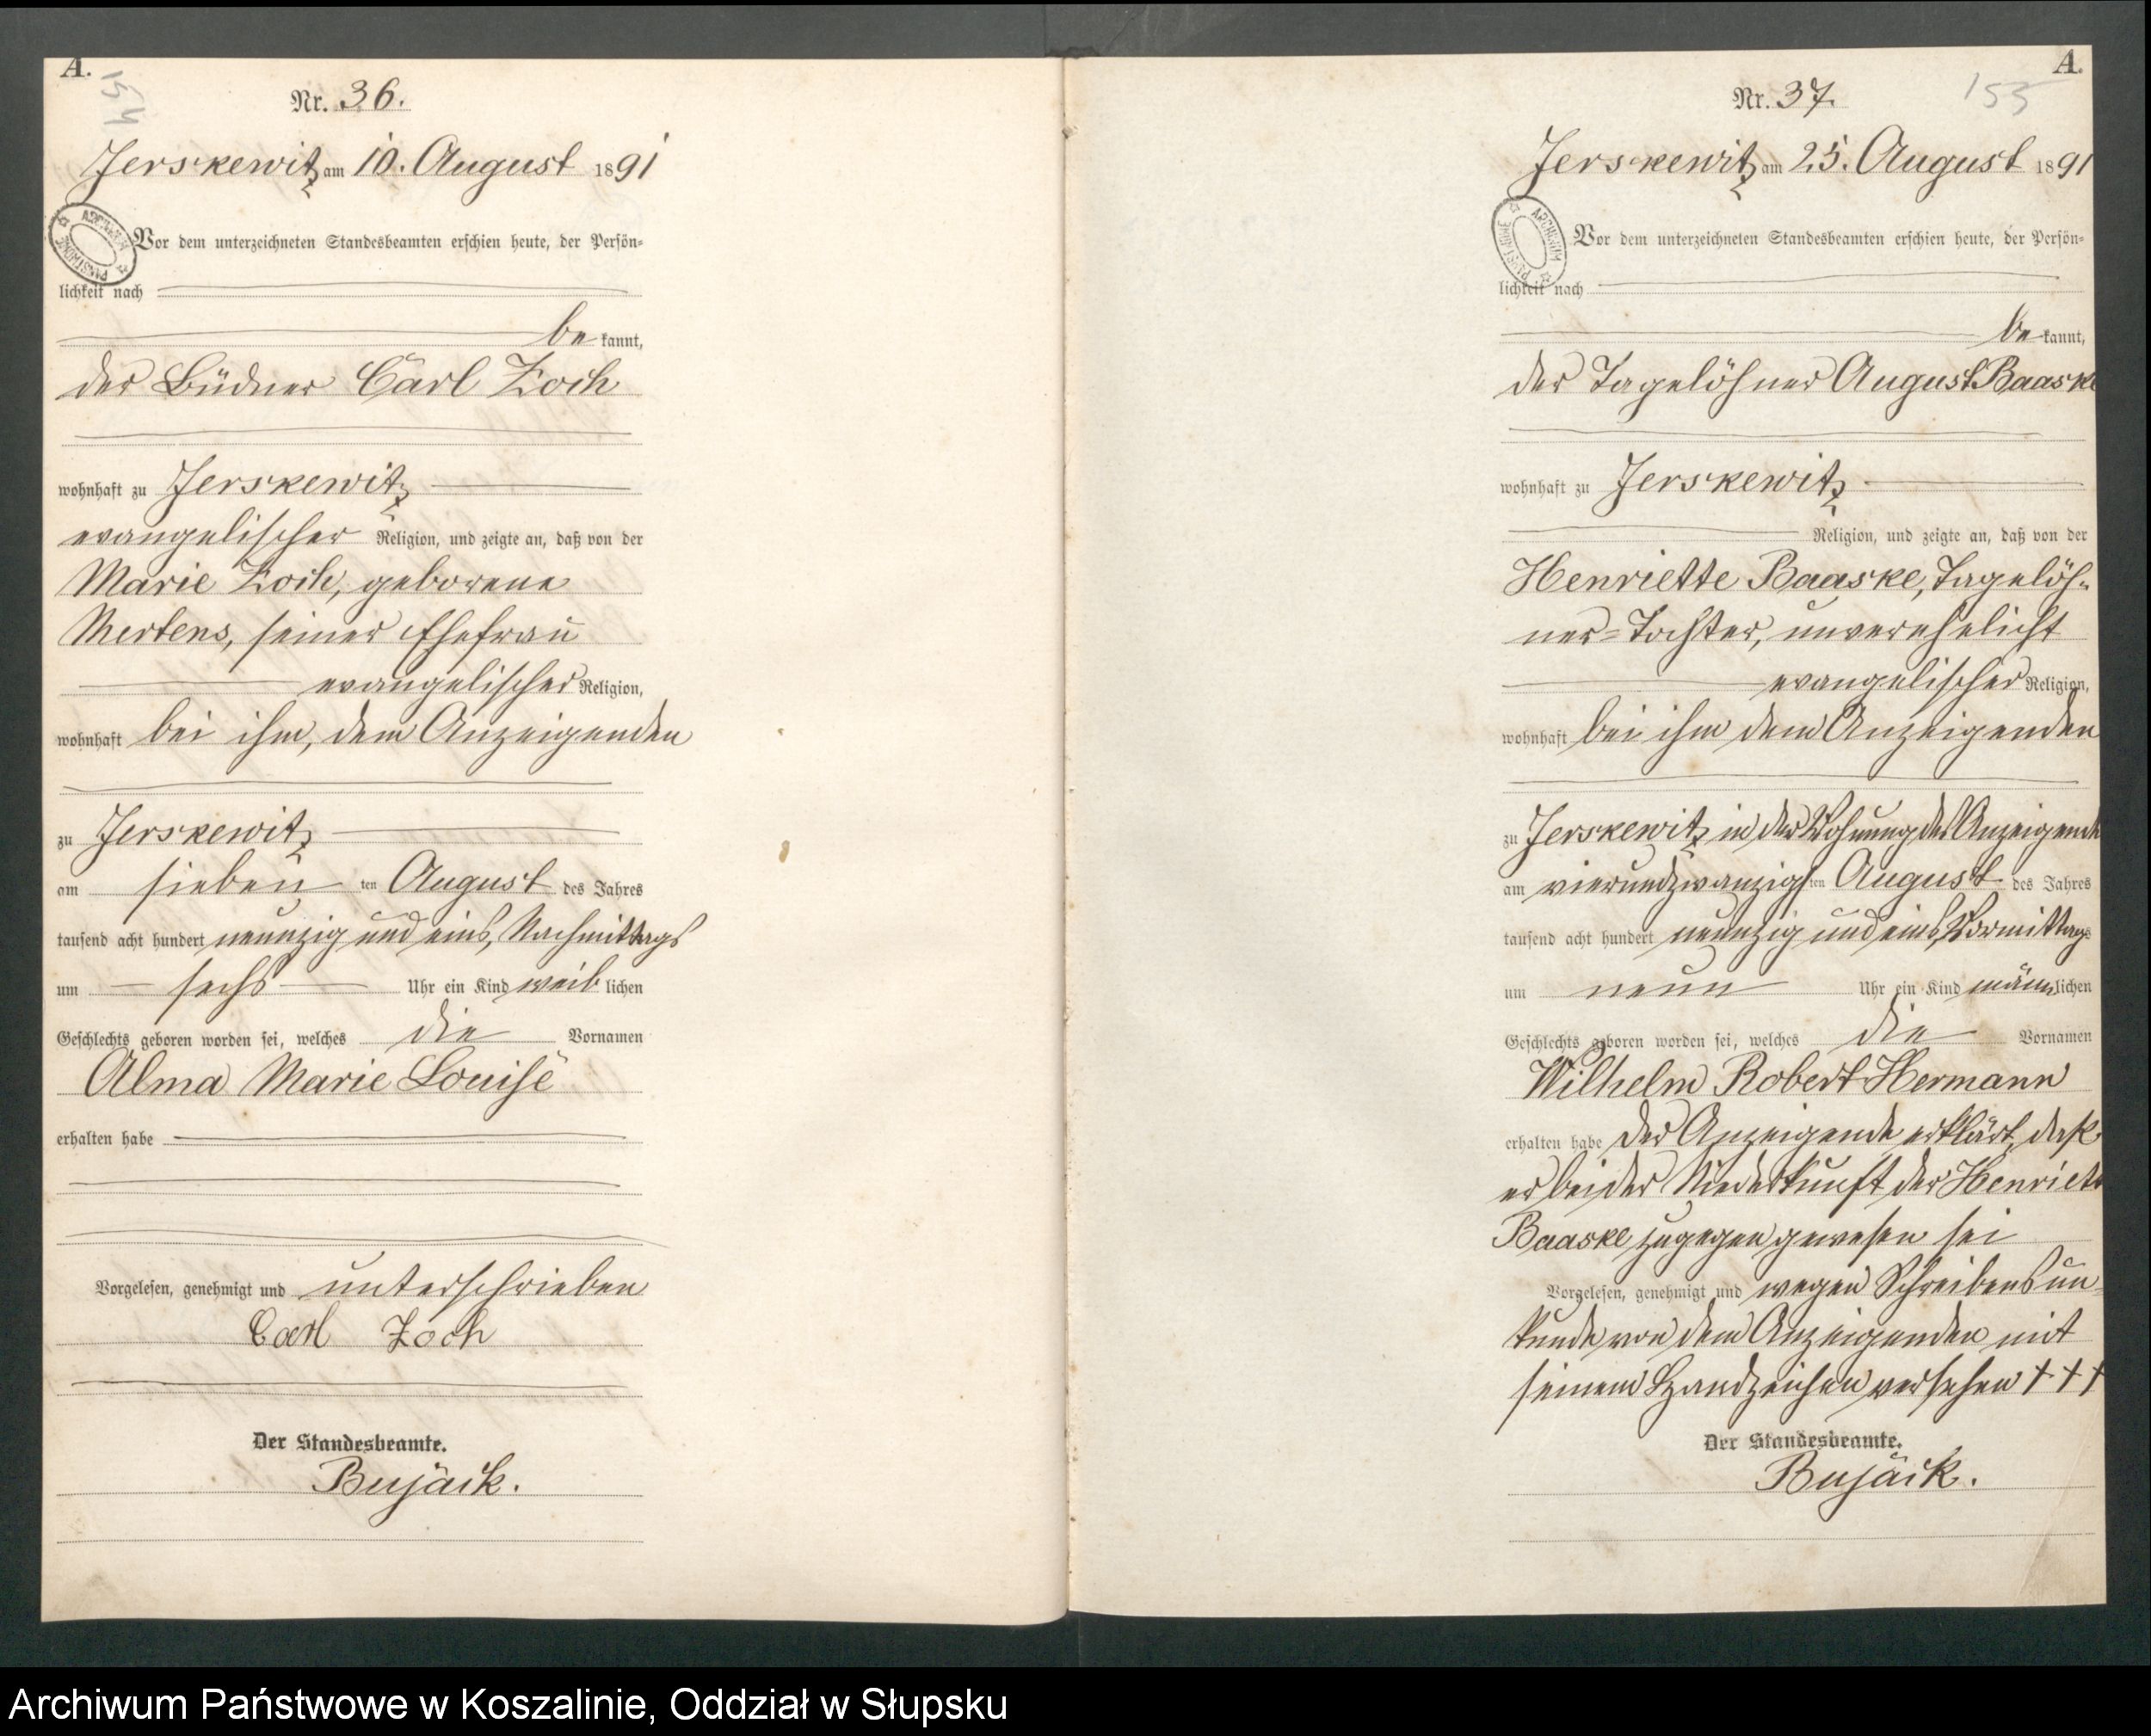 A.
154
Nr. 36.
Jerskewitz am 10. August 1891
ARCHIWUM PAŃSTWOWE
Vor dem unterzeichneten Standesbeamten erschien heute, der Persön=
lichkeit nach
be kannt,
der Büdner Carl Zoch
wohnhaft zu Jerskewitz
evangelischer Religion, und zeigte an, daß von der
Marie Zoch, geborene
Mertens, seiner Ehefrau
evangelischer Religion,
wohnhaft bei ihm, dem Anzeigenden
zu Jerskewitz
am sieben ten August des Jahres
tausend acht hundert neunzig und eins, Nachmittags
um sechs Uhr ein Kind weib lichen
Geschlechts geboren worden sei, welches die Vornamen
Alma Marie Louise
erhalten habe
Vorgelesen, genehmigt und unterschrieben
Carl Zoch
Der Standesbeamte.
Bujack.
A.
155
Nr. 37.
Jerskewitz am 25. August 1891
ARCHIWUM PAŃSTWOWE
Vor dem unterzeichneten Standesbeamten erschien heute, der Persön=
lichkeit nach
be kannt,
der Tagelöhner August Baaske
wohnhaft zu Jerskewitz
Religion, und zeigte an, daß von der
Henriette Baaske, Tagelöh=
ner=Tochter, unverehelicht
evangelischer Religion,
wohnhaft bei ihm dem Anzeigenden
zu Jerskewitz in der Wohnung des Anzeigende
am vierundzwanzigsten August des Jahres
tausend acht hundert neunzig und eins, Vormittags
um neun Uhr ein Kind männlichen
Geschlechts geboren worden sei, welches die Vornamen
Wilhelm Robert Hermann
erhalten habe Der Anzeigende erklärt, daß
er bei der Niederkunft der Henriette
Baaske zugegen gewesen sei
Vorgelesen, genehmigt und wegen Schreibensun=
kunde von dem Anzeigenden mit
seinem Handzeichen versehen + + +
Der Standesbeamte.
Bujack.
Archiwum Państwowe w Koszalinie, Oddział w Słupsku